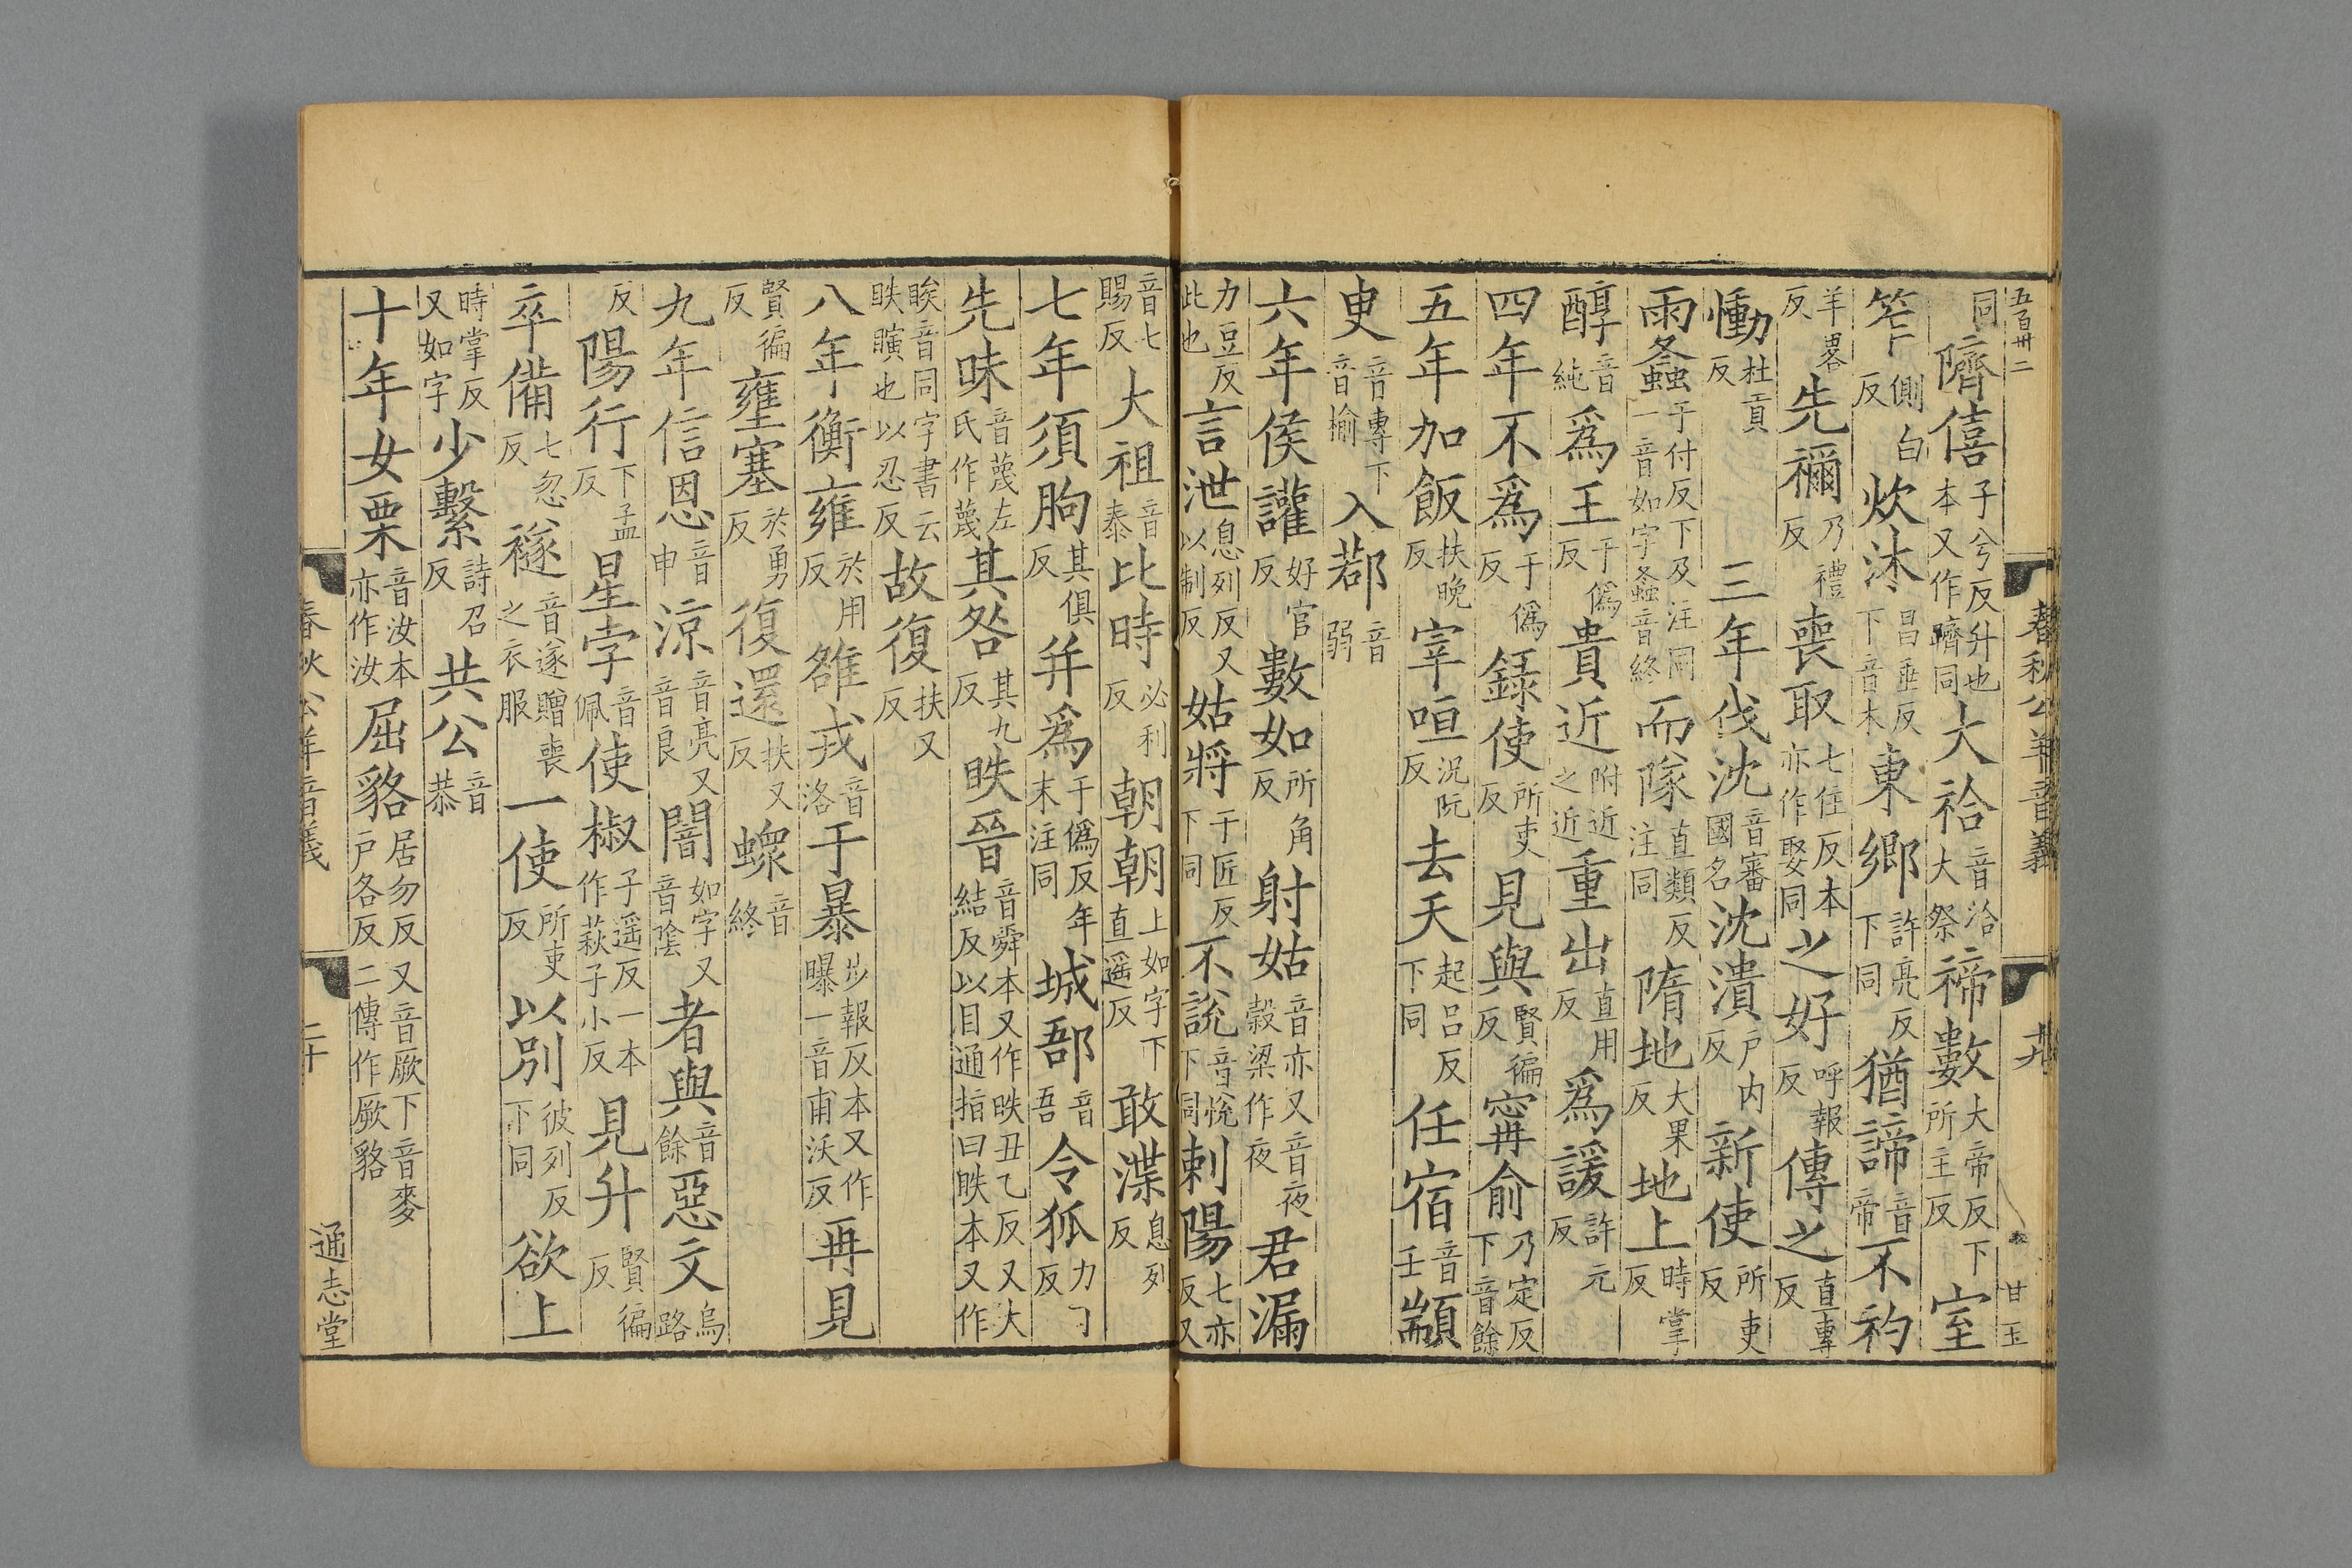 五百卅二
春秋公羊音義
甘玉
同隮僖子兮反升也本又作躋同大祫音洽大祭禘數大帝反下所主反室
笮側白反炊沐昌垂反下音木東鄉許亮反下同猶諦音帝不礿
羊畧反先禰乃禮反喪取七住反本亦作娶同之好呼報反傳之直專反
慟杜貢反三年伐沈音審國名沈潰户内反新使所吏反
雨螽于付反下及注同一音如字螽音終而隊直類反注同隋地大果反地上時掌反
醇音純爲王于僞反貴近附近之近重出直用反爲諼許元反
四年不爲于僞反録使所吏反見與賢徧反甯俞乃定反下音餘
五年加飯扶晚反宰咺況阮反去天起吕反下同任宿音壬顓
臾音專下音榆入鄀音弱
六年侯讙好官反數如所角反射姑音亦又音夜穀梁作夜君漏
力豆反此也言泄息列反又以制反姑將干匠反下同不說音悅下同刺陽七亦反又
音七賜反大祖音泰比時必利反朝朝上如字下直遥反敢渫息列反
七年須朐其俱反并爲于僞反年末注同城郚音吾令狐力丁反
先眜音蔑左氏作蔑其咎其九反眣晉音舜本又作昳丑乙反又大結反以目通指曰眣本又作
䀢音同字書云眣瞚也以忍反故復扶又反
八年衡雍於用反雒戎音洛于暴步報反本又作曝一音甫沃反再見
賢徧反壅塞於勇反復還扶又反蝝音終
九年信恩音申涼音亮又音良闇如字又音陰者與音餘惡文烏路
反陽行下孟反星孛音佩使椒子遥反一本作萩子小反見升賢徧反
卒備七忽反襚音遂贈喪之衣服一使所吏反以別彼列反下同欲上
時掌反又如字少繫詩召反共公音恭
十年女栗音汝本亦作汝屈貉居勿反又音厥下音麥户各反二傳作厥貉
春秋公羊音義
二十
通志堂